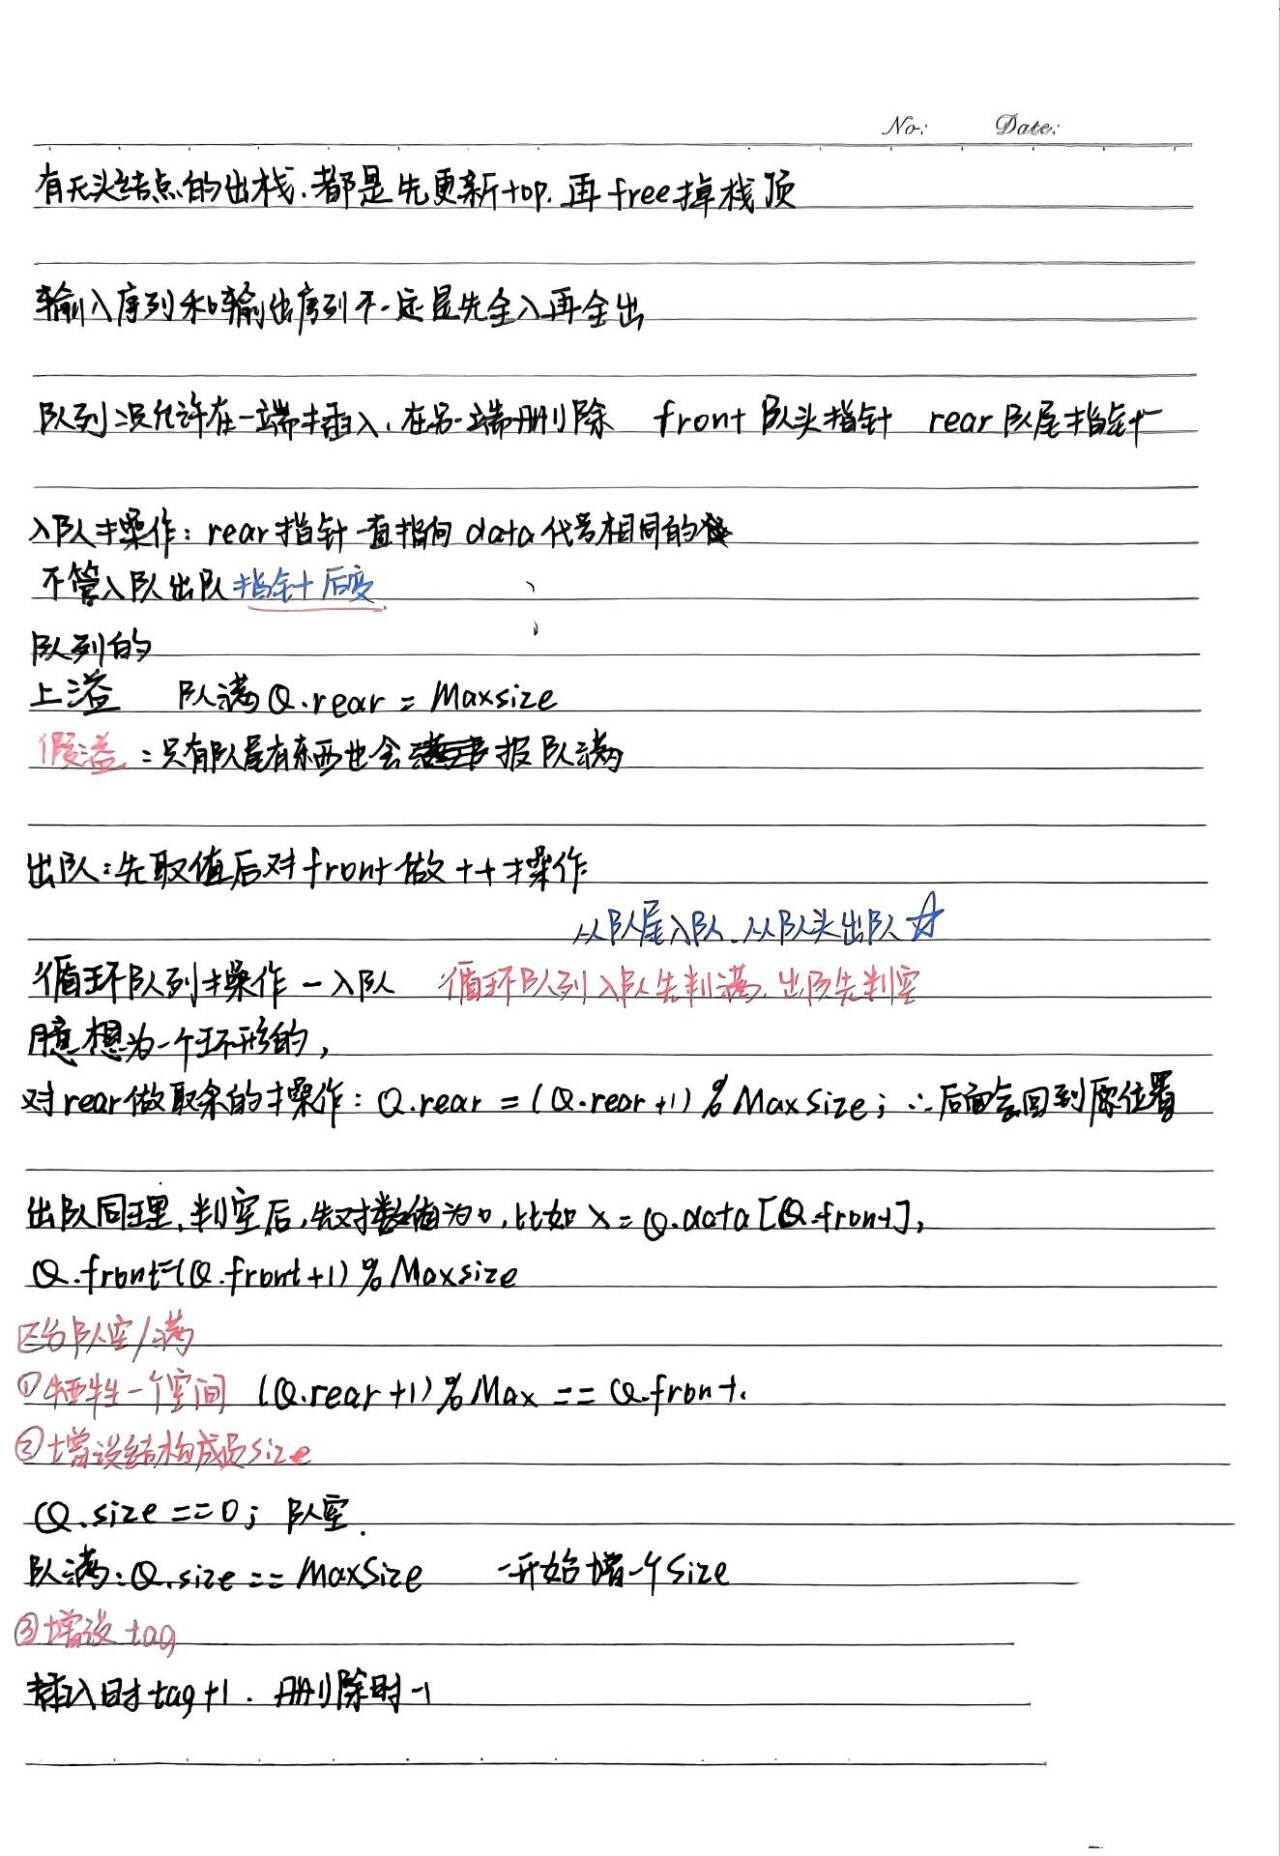 No: Date:
有无头结点的出栈.都是先更新top.再free掉栈顶
输入序列和输出序列不一定是先全入再全出
队列:只允许在一端插入.在另一端删除 front队头指针 rear队尾指针
入队操作:rear指针一直指向data代号相同的
不管入队出队指针后变
队列的
上溢 队满Q.rear = Maxsize
假溢:只有队尾有东西也会报队满
出队:先取值后对front做++操作
从队尾入队.从队头出队☆
循环队列操作-入队 循环队列入队先判满.出队先判空
臆想为一个环形的,
对rear做取余的操作:Q.rear = (Q.rear+1) % MaxSize; ∴后面会回到原位置
出队同理.判空后,先对数值为0,比如x=Q.data[Q.front],
Q.front=(Q.front+1) % Maxsize
区分队空/满
①牺牲一个空间 (Q.rear+1) % Max == Q.front.
②增设结构成员size
Q.size ==0; 队空.
队满:Q.size == MaxSize 一开始增一个size
③增设tag
插入时tag+1.删除时-1